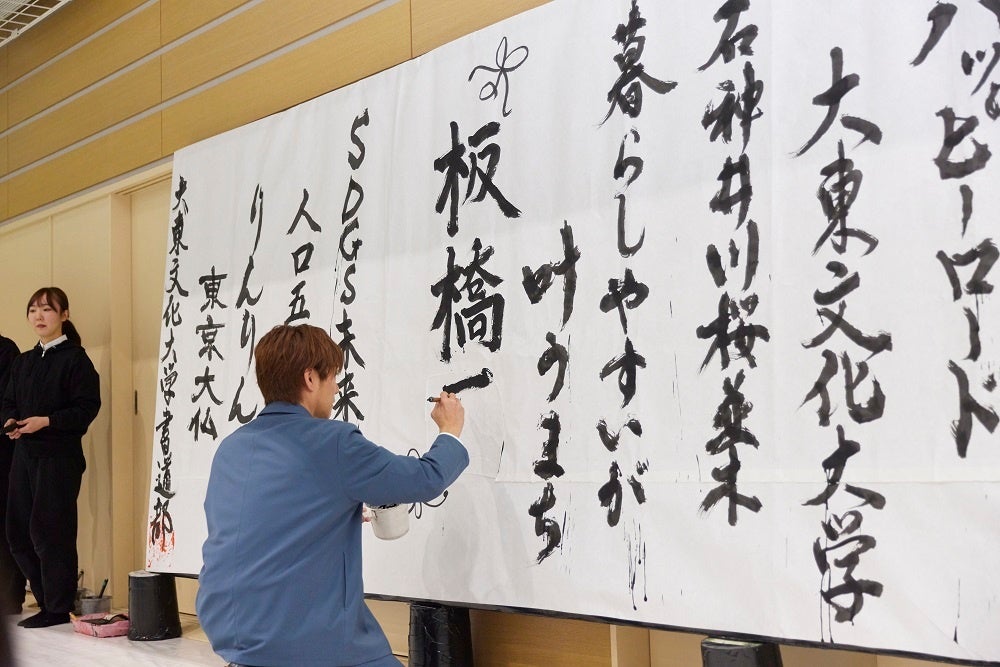 ハッピーロード
大東文化大学
石神井川桜並木
暮らしやすいが
叶うまち
板橋一
SDGS未来
人口五
りんりん
東京大仏
大東文化大学書道部